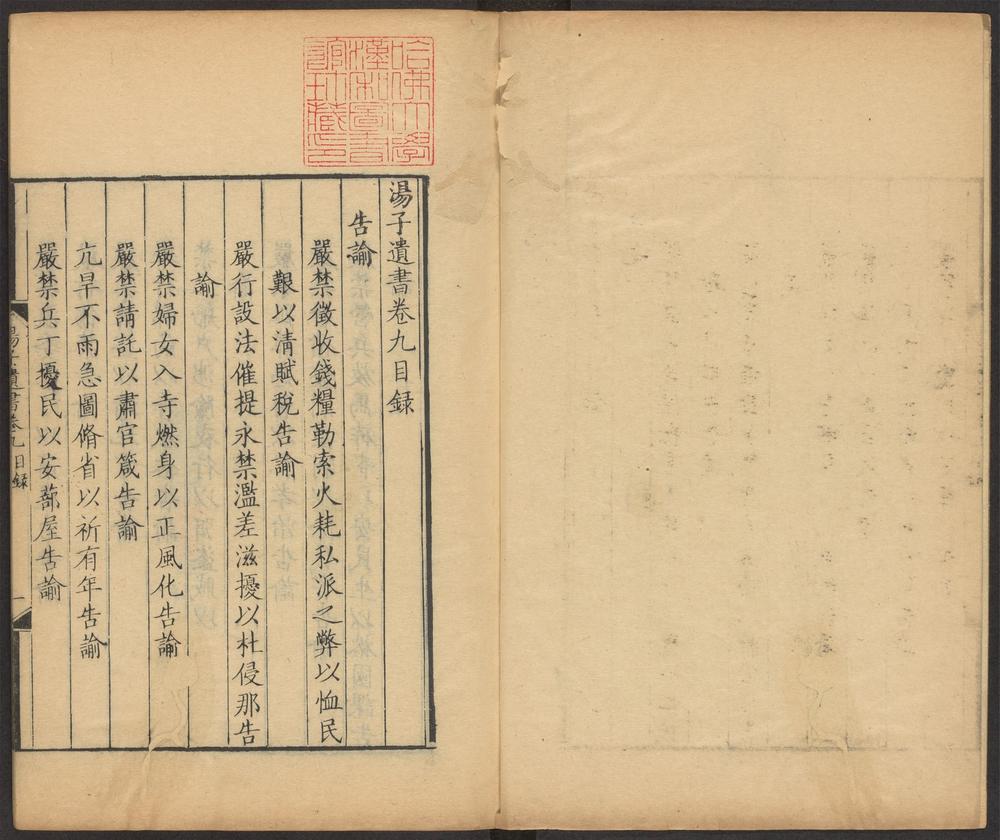 湯子遺書卷九目録
告諭
嚴禁徵收錢糧勒索火耗私派之弊以恤民
艱以清賦稅告諭
嚴行設法催提永禁濫差滋擾以杜侵那告
諭
嚴禁婦女入寺燃身以正風化告諭
嚴禁請託以肅官箴告諭
亢旱不雨急圖脩省以祈有年告諭
嚴禁兵丁擾民以安蔀屋告諭
湯子遺書卷九目録
一
哈佛大學
漢和圖書
館珍藏印